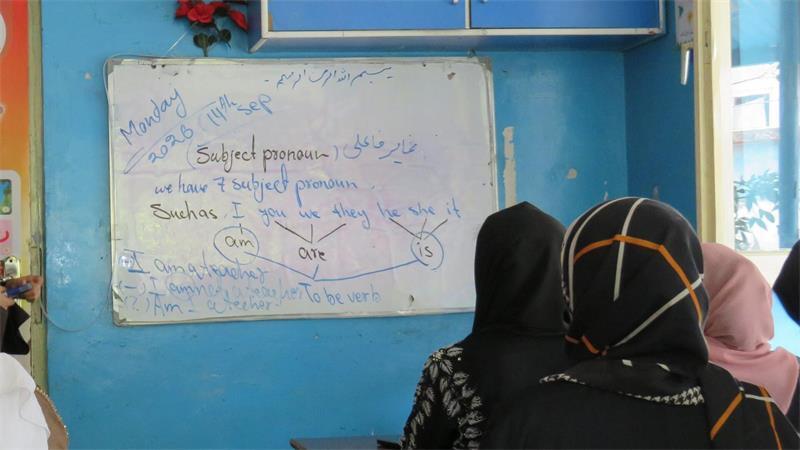 بسم الله الرحمن الرحیم
Monday
2026 14th Sep
(Subject pronoun) ضمایر فاعلی
we have 7 subject pronoun.
Such as. I you we they he she it
am are is
I am a teacher
To be verb
(-) I am not a teacher
(?) Am - a teacher